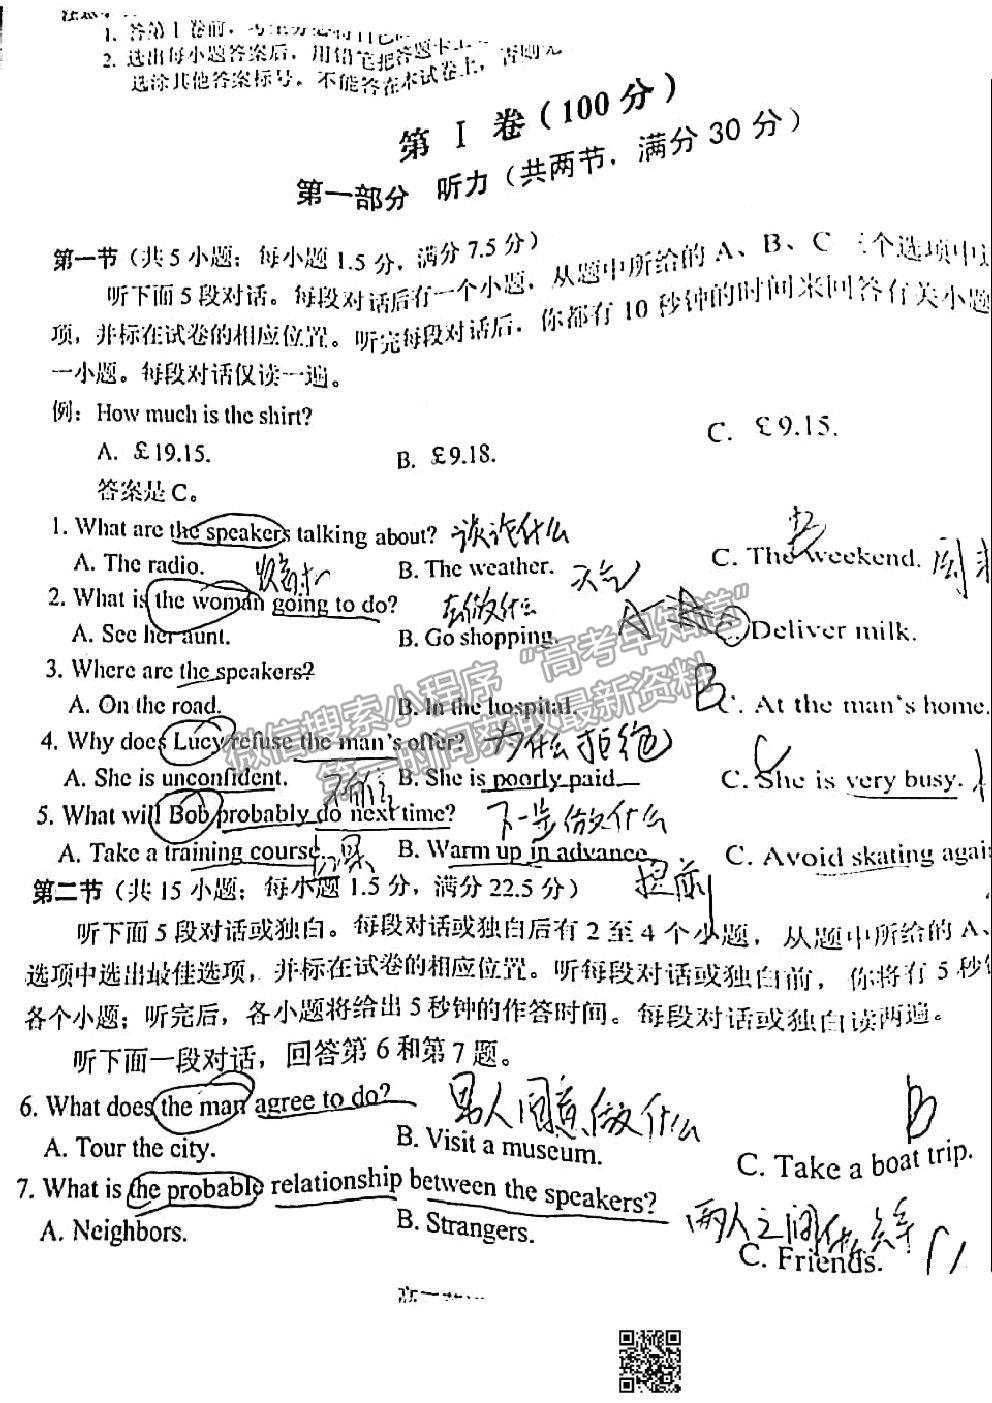 1. 答第Ⅰ卷前,
2. 选出每小题答案后, 用铅笔把答题卡上
选涂其他答案标号。不能答在本试卷上, 否则无
第 Ⅰ 卷(100分)
第一部分 听力(共两节, 满分30分)
第一节(共5小题; 每小题1.5分, 满分7.5分)
听下面5段对话。每段对话后有一个小题, 从题中所给的 A、B、C 三个选项中
项, 并标在试卷的相应位置。听完每段对话后, 你都有 10 秒钟的时间来回答有关小题
一小题。每段对话仅读一遍。
例: How much is the shirt?
A. £19.15. B. £9.18. C. £9.15.
答案是 C。
1. What are the speakers talking about? 谈论什么
A. The radio. B. The weather. 天气 C. The weekend. 周末
2. What is the woman going to do? 去做什么
A. See her aunt. B. Go shopping. C. Deliver milk.
3. Where are the speakers?
A. On the road. B. In the hospital. B C. At the man's home.
4. Why does Lucy refuse the man's offer? 为什么拒绝
A. She is unconfident. B. She is poorly paid. C C. She is very busy.
5. What will Bob probably do next time? 下一步做什么
A. Take a training course. B. Warm up in advance. 提前 C. Avoid skating agai
第二节(共15小题; 每小题1.5分, 满分22.5分)
听下面5段对话或独白。每段对话或独白后有2至4个小题, 从题中所给的 A、
选项中选出最佳选项, 并标在试卷的相应位置。听每段对话或独白前, 你将有 5 秒
各个小题; 听完后, 各小题将给出5秒钟的作答时间。每段对话或独白读两遍。
听下面一段对话, 回答第6和第7题。
6. What does the man agree to do? 男人同意做什么 B
A. Tour the city. B. Visit a museum. C. Take a boat trip.
7. What is the probable relationship between the speakers? 两人之间什么关系
A. Neighbors. B. Strangers. C. Friends.
高一
微信搜索小程序“高考早知道”
第一时间获取最新资料